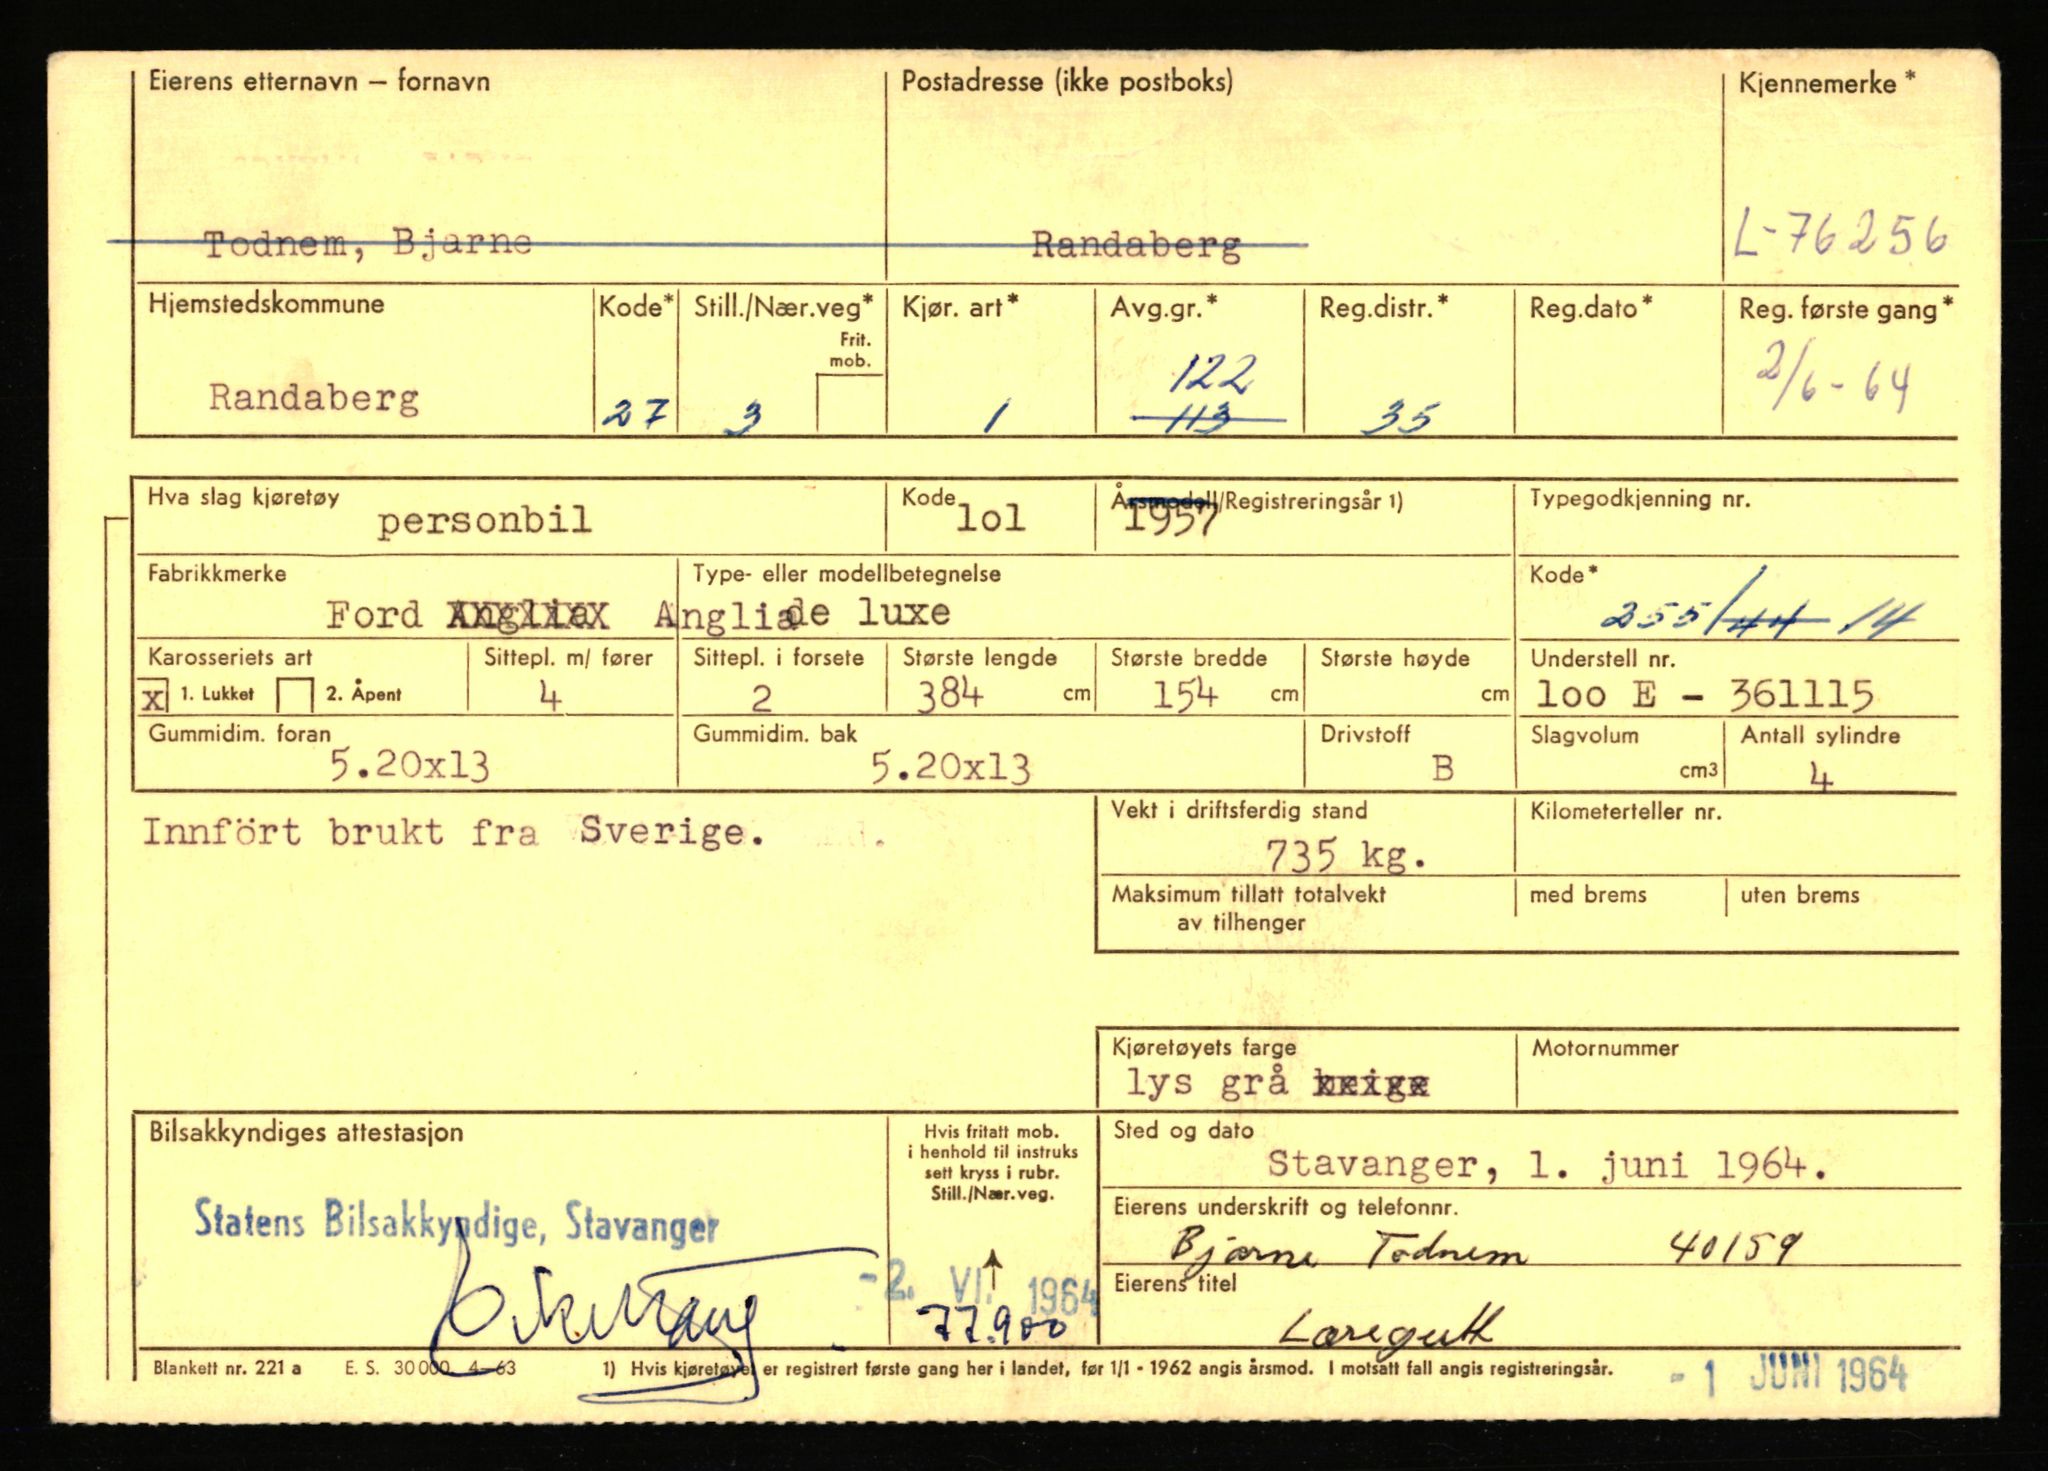 Eierens etternavn — fornavn
Postadresse (ikke postboks)
Kjennemerke *
Todnem, Bjarne
Randaberg
L-76256
Hjemstedskommune
Kode*
Still./Nær.veg*
Frit.
mob.
Kjør. art*
Avg.gr.*
Reg.distr.*
Reg.dato*
Reg. første gang*
122
2/6-64
Randaberg
27
3
1
113
35
Hva slag kjøretøy
personbil
Kode
lol
Årsmodell/Registreringsår 1)
1957
Typegodkjenning nr.
Fabrikkmerke
Type- eller modellbetegnelse
Kode*
Ford Anglia Anglia de luxe
255/44 14
Karosseriets art
Sittepl. m/ fører
Sittepl. i forsete
Største lengde
Største bredde
Største høyde
Understell nr.
x 1. Lukket
2. Åpent
4
2
384 cm
154 cm
cm
loo E - 361115
Gummidim. foran
Gummidim. bak
Drivstoff
Slagvolum
Antall sylindre
5.20x13
5.20x13
B
cm3
4
Innfört brukt fra Sverige.
Vekt i driftsferdig stand
735 kg.
Kilometerteller nr.
Maksimum tillatt totalvekt
av tilhenger
med brems
uten brems
Kjøretøyets farge
lys grå beige
Motornummer
Bilsakkyndiges attestasjon
Hvis fritatt mob.
i henhold til instruks
sett kryss i rubr.
Still./Nær.veg.
Sted og dato
Stavanger, 1. juni 1964.
Statens Bilsakkyndige, Stavanger
Eierens underskrift og telefonnr.
Bjarne Todnem 40159
-2. VI. 1964
77.900
Eierens titel
Læregutt
Blankett nr. 221 a E. S. 30 000 4-63
1) Hvis kjøretøyet er registrert første gang her i landet, før 1/1 - 1962 angis årsmod. I motsatt fall angis registreringsår.
- 1 JUNI 1964